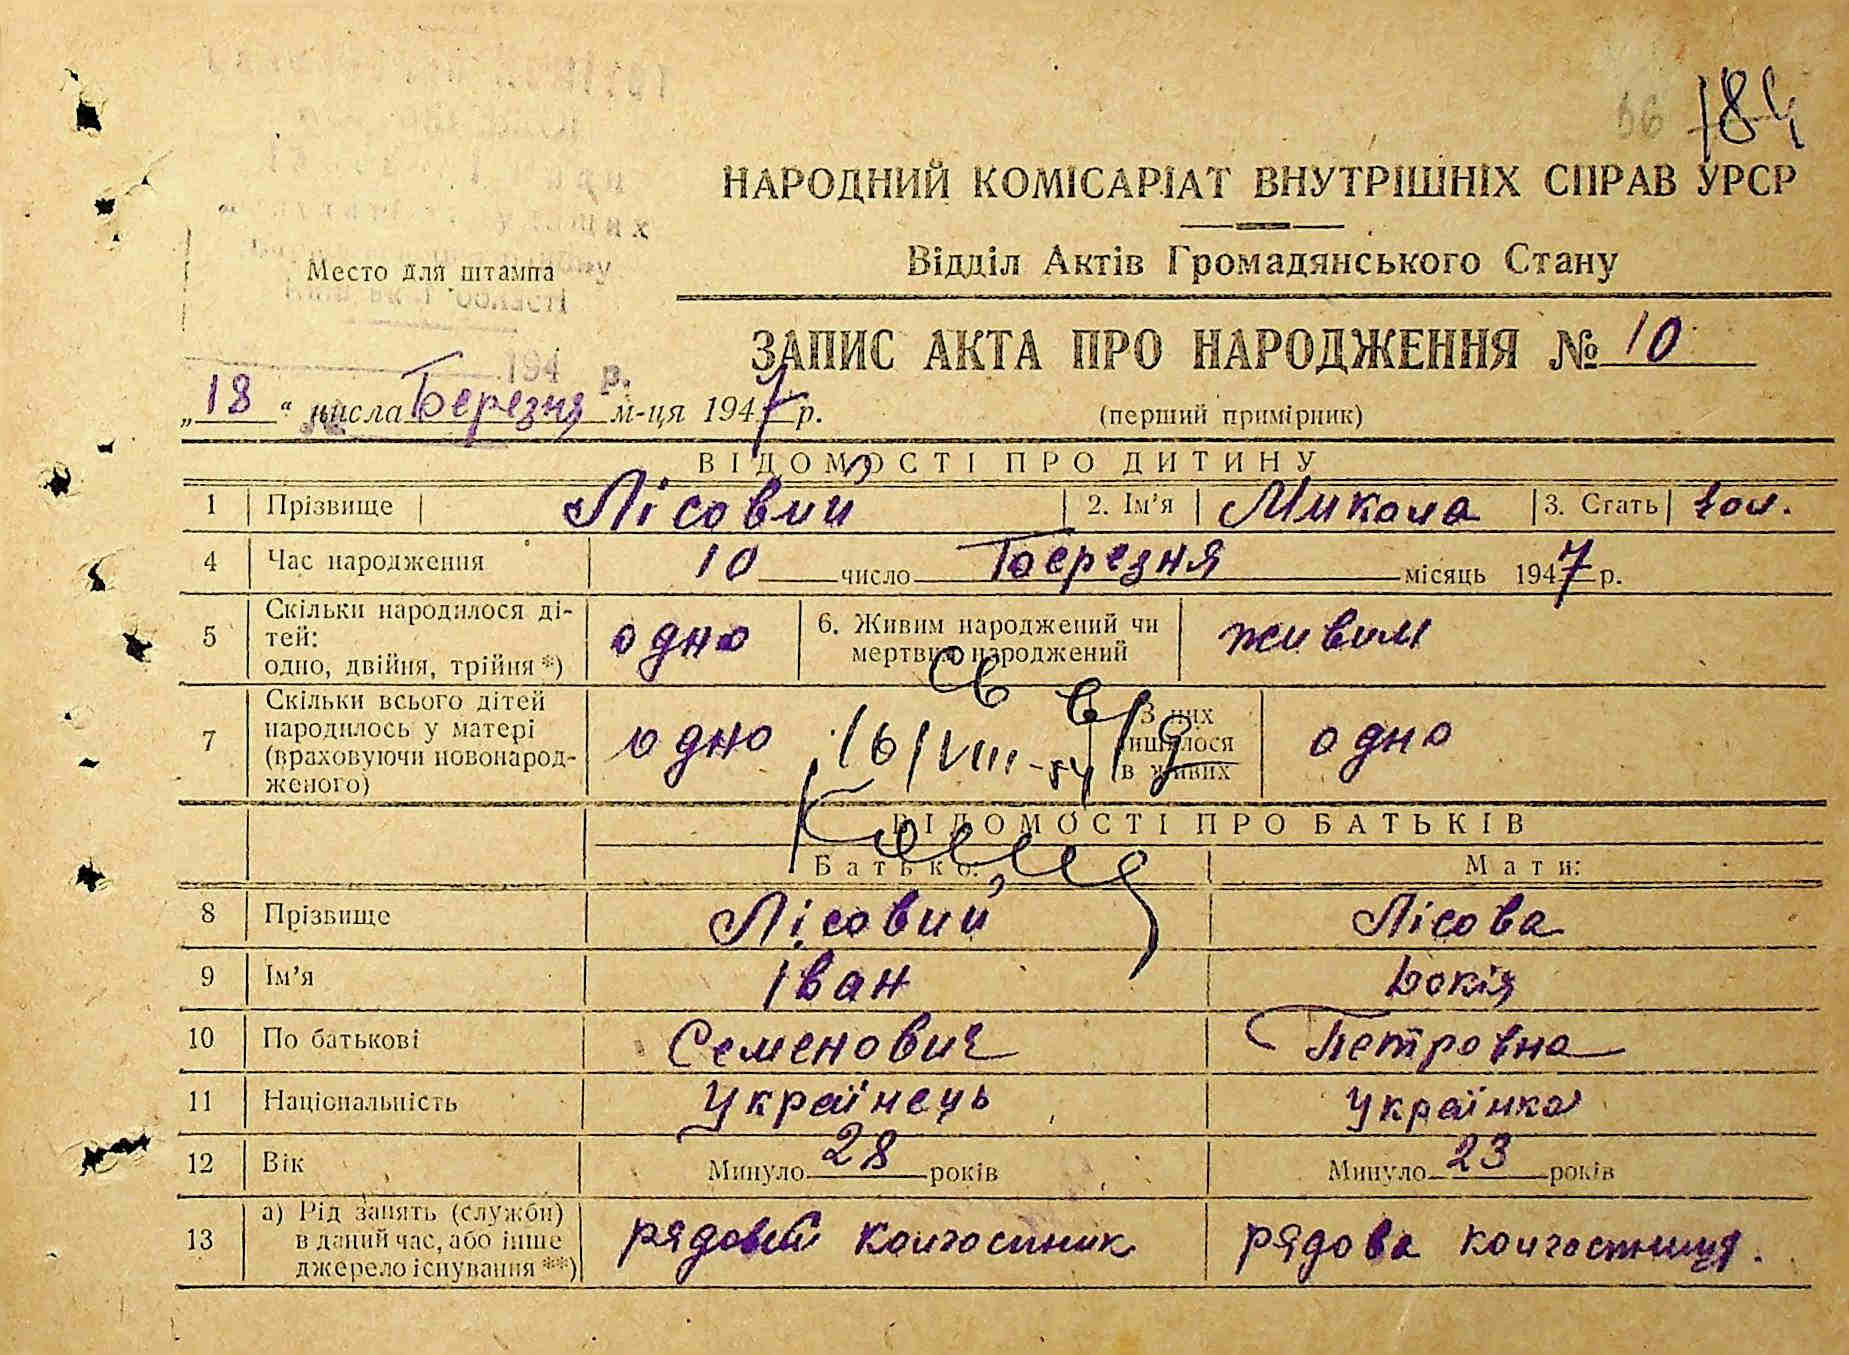 66 184
НАРОДНИЙ КОМІСАРІАТ ВНУТРІШНІХ СПРАВ УРСР
Відділ Актів Громадянського Стану
Место для штампа
ЗАПИС АКТА ПРО НАРОДЖЕННЯ № 10
194 р.
„18“ числа Березня м-ця 1947 р.
(перший примірник)
ВІДОМОСТІ ПРО ДИТИНУ
1 Прізвище Лісовий 2. Ім'я Микола 3. Стать чол.
4 Час народження 10 число Березня місяць 1947 р.
5 Скільки народилося ді-
тей:
одно, двійня, трійня*) одно 6. Живим народжений чи
мертвим народжений живим
7 Скільки всього дітей
народилось у матері
(враховуючи новонарод-
женого) одно З них
лишилося
в живих одно
16/VIII-54
ВІДОМОСТІ ПРО БАТЬКІВ
Батько: Мати:
8 Прізвище Лісовий Лісова
9 Ім'я Іван
10 По батькові Семенович Петровна
11 Національність Українець Українка
12 Вік Минуло 28 років Минуло 23 років
13 а) Рід занять (служби)
в даний час, або інше
джерело існування**) рядовий колгоспник рядова колгоспниця.